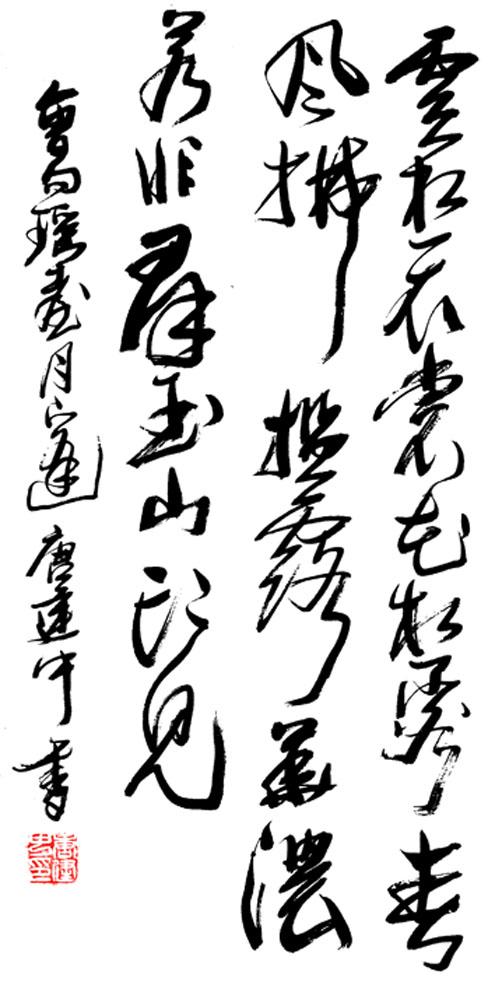 雲想衣裳花想容春
风拂檻露華濃
若非羣玉山头見
會向瑶臺月下逢 唐建中書